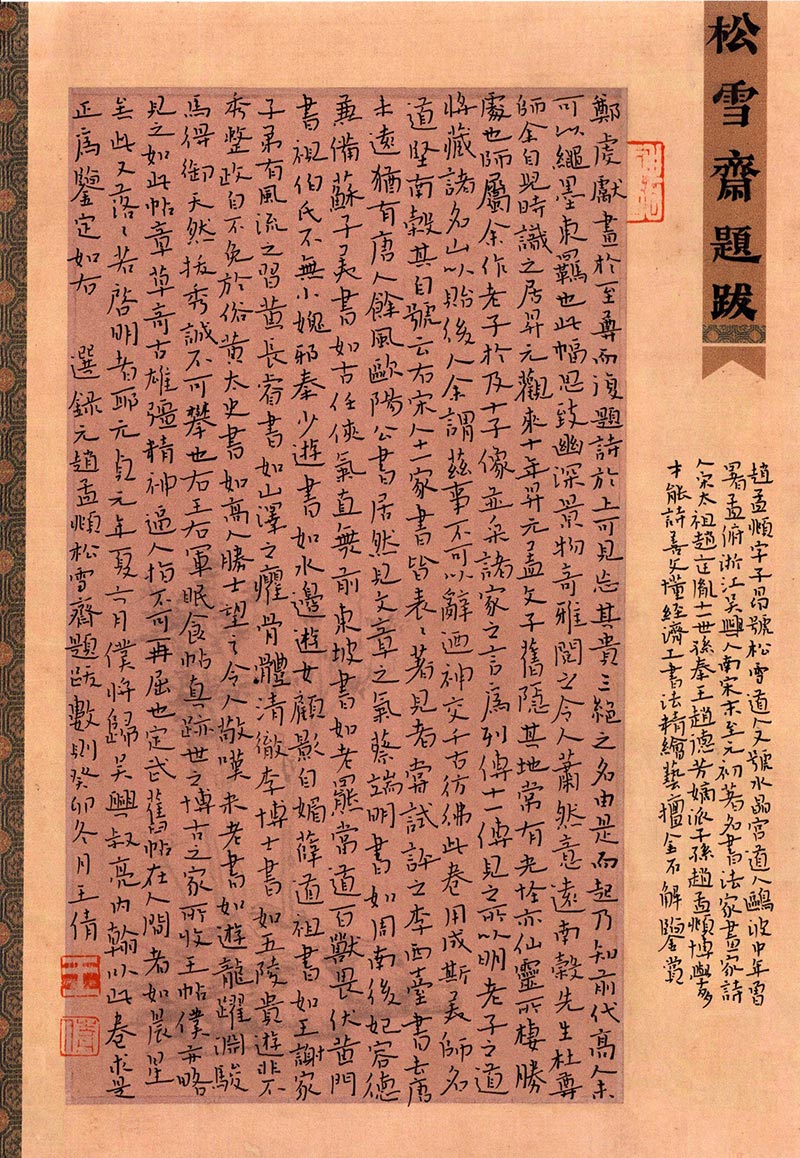 松雪齋題跋
趙孟頫字子昂號松雪道人又號水晶宮道人鷗波中年曾
署孟俯浙江吳興人南宋末至元初著名書法家畫家詩
人宋太祖趙匡胤十一世孫秦王趙德芳嫡派子孫趙孟頫博學多
才能詩善文懂經濟工書法精繪藝擅金石解鑒賞
鄭虔獻畫於至尊而復題詩於上可見忘其貴三絕之名由是而起乃知前代高人未
可以繩墨束羈也此幅思致幽深景物奇雅閱之令人蕭然意遠南穀先生杜尊
師余自兒時識之居昇元觀來十年昇元文子舊隱其地常有光怪亦仙靈所棲勝
處也師屬余作老子及十子像並采諸家之言為列傳十一傳見之所以明老子之道
將藏諸名山以貽後人余謂茲事不可以辭迺神交千古彷彿此卷用成斯美師名
道堅南穀其自號云右宋人十一家書皆表〻著見者嘗試評之李西臺書去唐
未遠猶有唐人餘風歐陽公書居然見文章之氣蔡端明書如周南後妃容德
兼備蘇子美書如古任俠氣直無前東坡書如老羆當道百獸畏伏黃門
書視伯氏不無小媿邪秦少遊書如水邊遊女顧影自媚薛道祖書如王謝家
子弟有風流之習黃長睿書如山澤之癯骨體清徹李博士書如五陵貴遊非不
秀整政自不免於俗黃太史書如高人勝士望之令人敬嘆米老書如遊龍躍淵駿
馬得御天然拔秀誠不可攀也右王右軍眠食帖真跡世之博古之家所收王帖僕亦略
見之如此帖章草奇古雄彊精神逼人指不可再屈也定武舊帖在人間者如晨星
矣此又落〻若啓明者耶元貞元年夏六月僕將歸吳興叔亮內翰以此卷求是
正為鑒定如右 選錄元趙孟頫松雪齋題跋數則癸卯冬月王倩